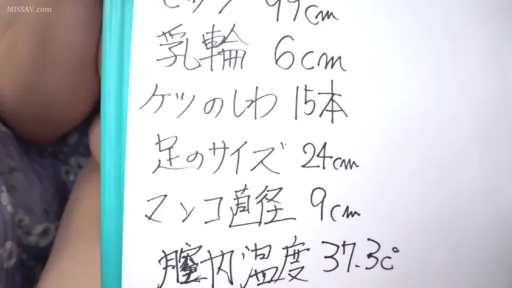 MISSAV.com
ヒップ 99cm
乳輪 6cm
ケツのしわ 15本
足のサイズ 24cm
マンコ直径 9cm
膣内温度 37.3c°